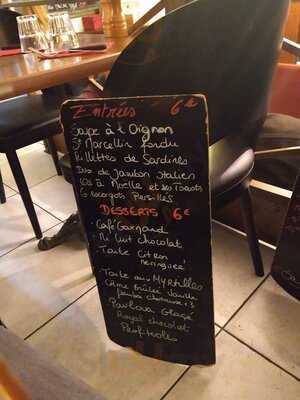 Entrées 6€
Soupe à l'Oignon
St Marcellin fondu
Rillettes de Sardines
Duo de Jambon Italien
Os à Moelle et ses Toasts
6 escargots Persillés
DESSERTS 6€
Café Gourmand
Mi Cuit chocolat
Tarte Citron
meringuée
Tarte aux MYRTILLES
Crème Brûlée Vanille
Pavlova Glacé
Royal chocolat
Profiteroles